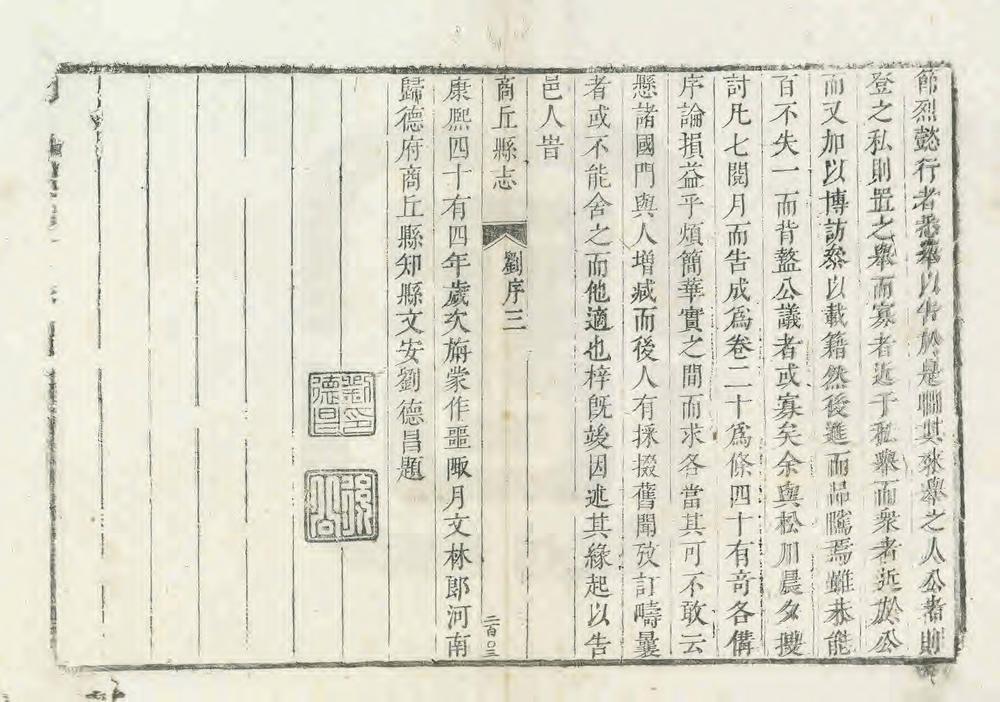 節烈懿行者悉舉以告於是覵其來舉之人公者則
登之私則置之舉而寡者近于私舉而衆者近於公
而又加以博訪叅以載籍然後進而品騭焉雖未能
百不失一而背盭公議者或寡矣余與松川晨夕摉
討凡七閱月而告成爲卷二十爲條四十有竒各偹
序論損益乎煩簡華實之間而求各當其可不敢云
懸諸國門與人增减而後人有採掇舊聞攷訂疇曩
者或不能舍之而他適也梓既竣因述其緣起以告
邑人旹
商丘縣志
劉序三
二百〇三
康熙四十有四年歲次旃蒙作噩陬月文林郎河南
歸德府商丘縣知縣文安劉德昌題
劉印德昌